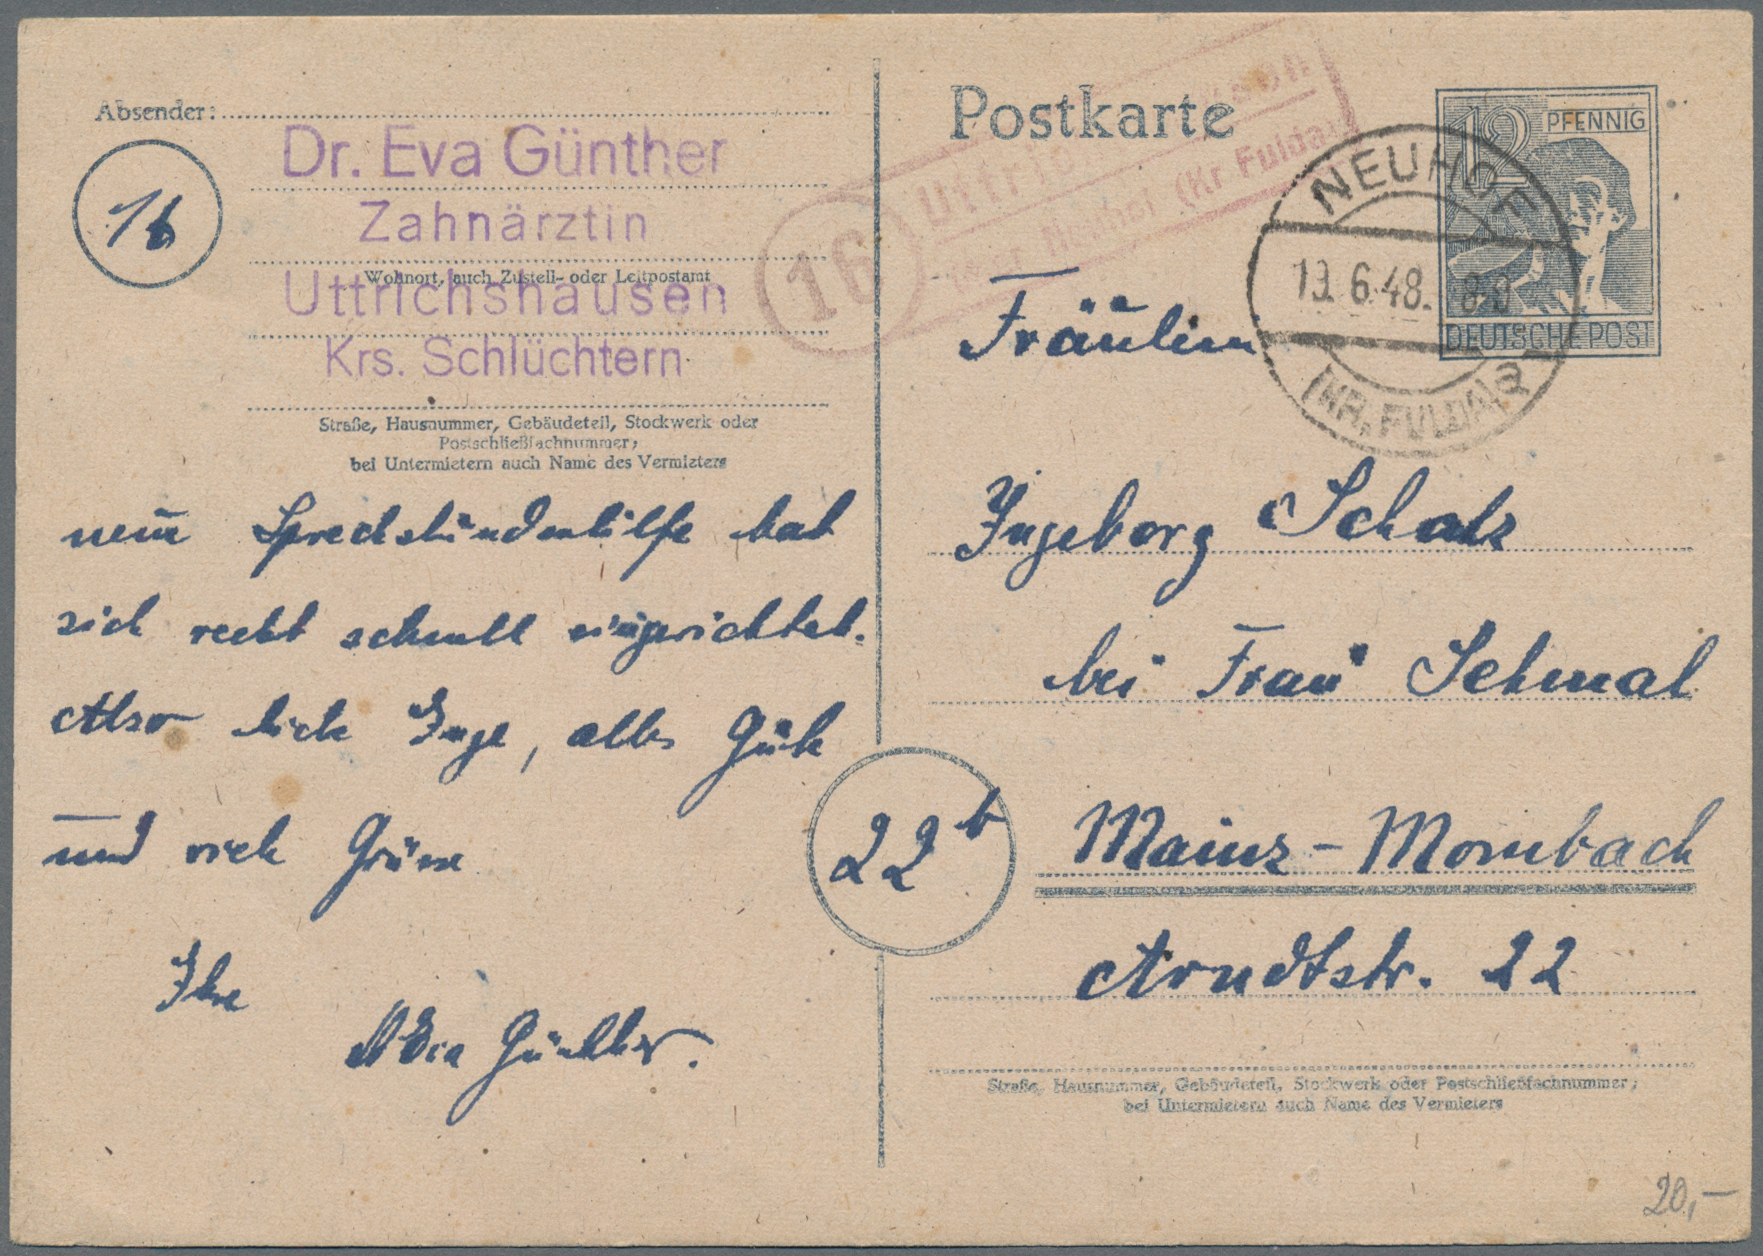 Absender:
16
Dr. Eva Günther
Zahnärztin
Wohnort, auch Zustell- oder Leitpostamt
Uttrichshausen
Krs. Schlüchtern
Straße, Hausnummer, Gebäudeteil, Stockwerk oder
Postschließfachnummer;
bei Untermietern auch Name des Vermieters
neue Sprechstundenhilfe hat
sich recht schnell eingerichtet.
Also liebe Inge, alles Gute
und viele Grüsse
Ihre
Eva Günther.
Postkarte
16
Uttrichshausen
Neuhof (Kr Fulda)
12 PFENNIG
DEUTSCHE POST
NEUHOF
19.6.48. 8-9
(KR. FULDA) a
Fräulein
Ingeborg Schatz
bei Frau Schmal
22b
Mainz-Mombach
Arndtstr. 22
Straße, Hausnummer, Gebäudeteil, Stockwerk oder Postschließfachnummer;
bei Untermietern auch Name des Vermieters
20,-